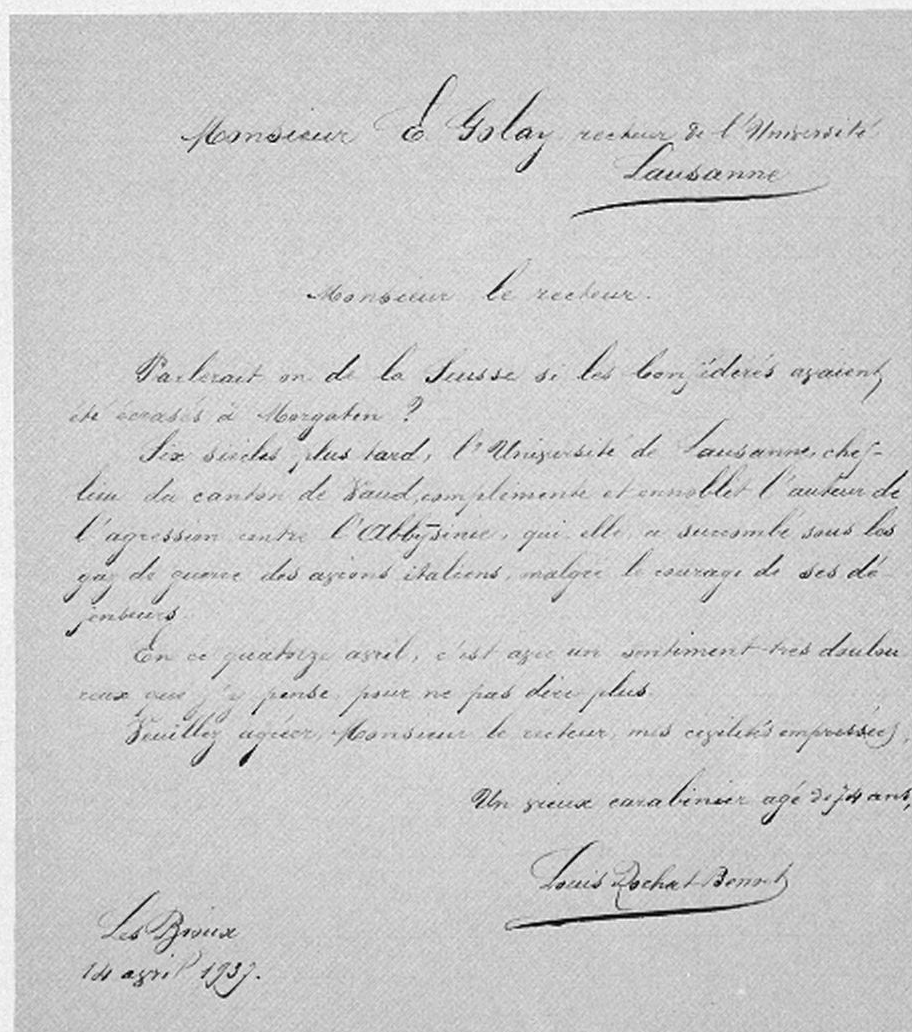 Monsieur E. Golay recteur de l'Université
Lausanne
Monsieur le recteur.
Parlerait on de la Suisse si les Confédérés avaient
été écrasés à Morgaten ?
Six siècles plus tard, l'Université de Lausanne, chef-
lieu du canton de Vaud, complimente et ennoblit l'auteur de
l'agression contre l'Abbysinie, qui, elle, a succombé sous les
gaz de guerre des avions italiens, malgré le courage de ses dé-
fenseurs.
En ce quatorze avril, c'est avec un sentiment très doulou
reux que j'y pense, pour ne pas dire plus
Veuillez agréer, Monsieur le recteur, mes civilités empressées,
Un vieux carabinier agé de 74 ans,
Louis Rochat-Benoit
Les Bioux
14 avril 1937.